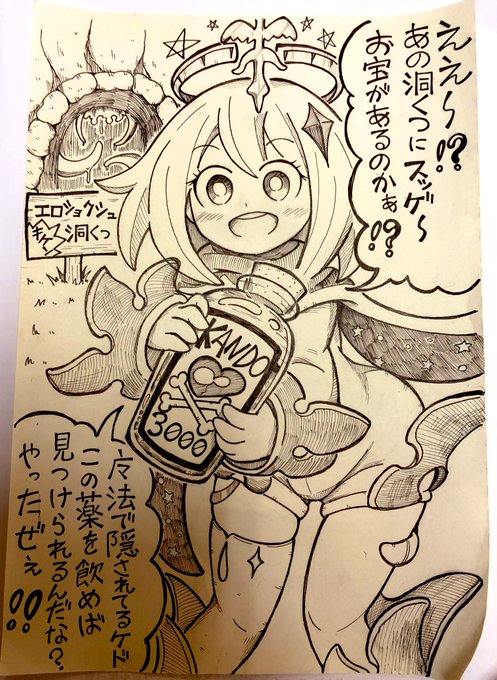 ええ〜!?
あの洞くつにスッゲ〜
お宝があるのかぁ!?
エロショクシュ
洞くつ
KANDO
3000
法で隠されてるケド
この薬を飲めば
見つけられるんだな?
やったぜぇ!!